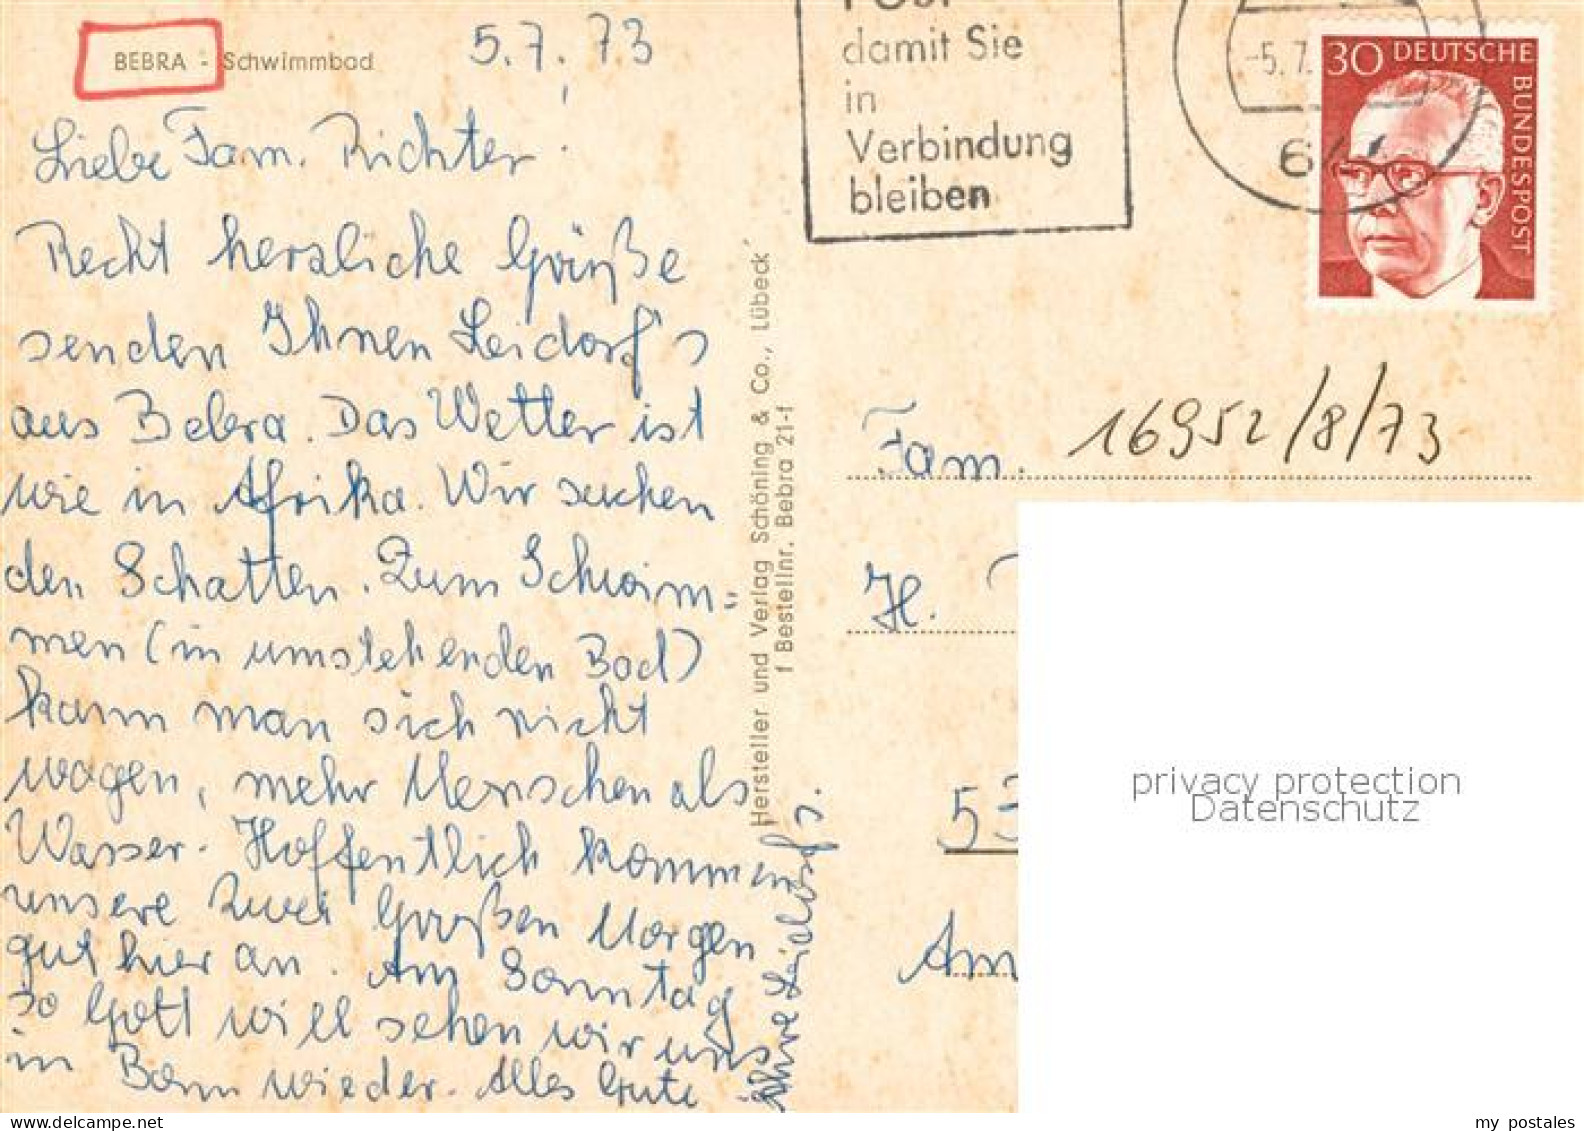 BEBRA - Schwimmbad
5.7.73
Liebe Fam. Richter!
Recht herzliche Grüße
senden Ihnen Leidorf's
aus Bebra. Das Wetter ist
wie in Afrika. Wir suchen
den Schatten. Zum Schwim=
men (in umstehenden Bad)
kann man sich nicht
wagen, mehr Menschen als
Wasser. Hoffentlich kommen
unsere zwei Großen Morgen
gut hier an. Am Sonntag
so Gott will sehen wir uns
in Bonn wieder. Alles Gute
Ihre Leidorf's.
Hersteller und Verlag Schöning & Co., Lübeck
f Bestellnr. Bebra 21-f
damit Sie
in
Verbindung
bleiben
-5.7.
30 DEUTSCHE
BUNDESPOST
Fam. 16952/8/73
H.
53
Am
privacy protection
Datenschutz
my postales